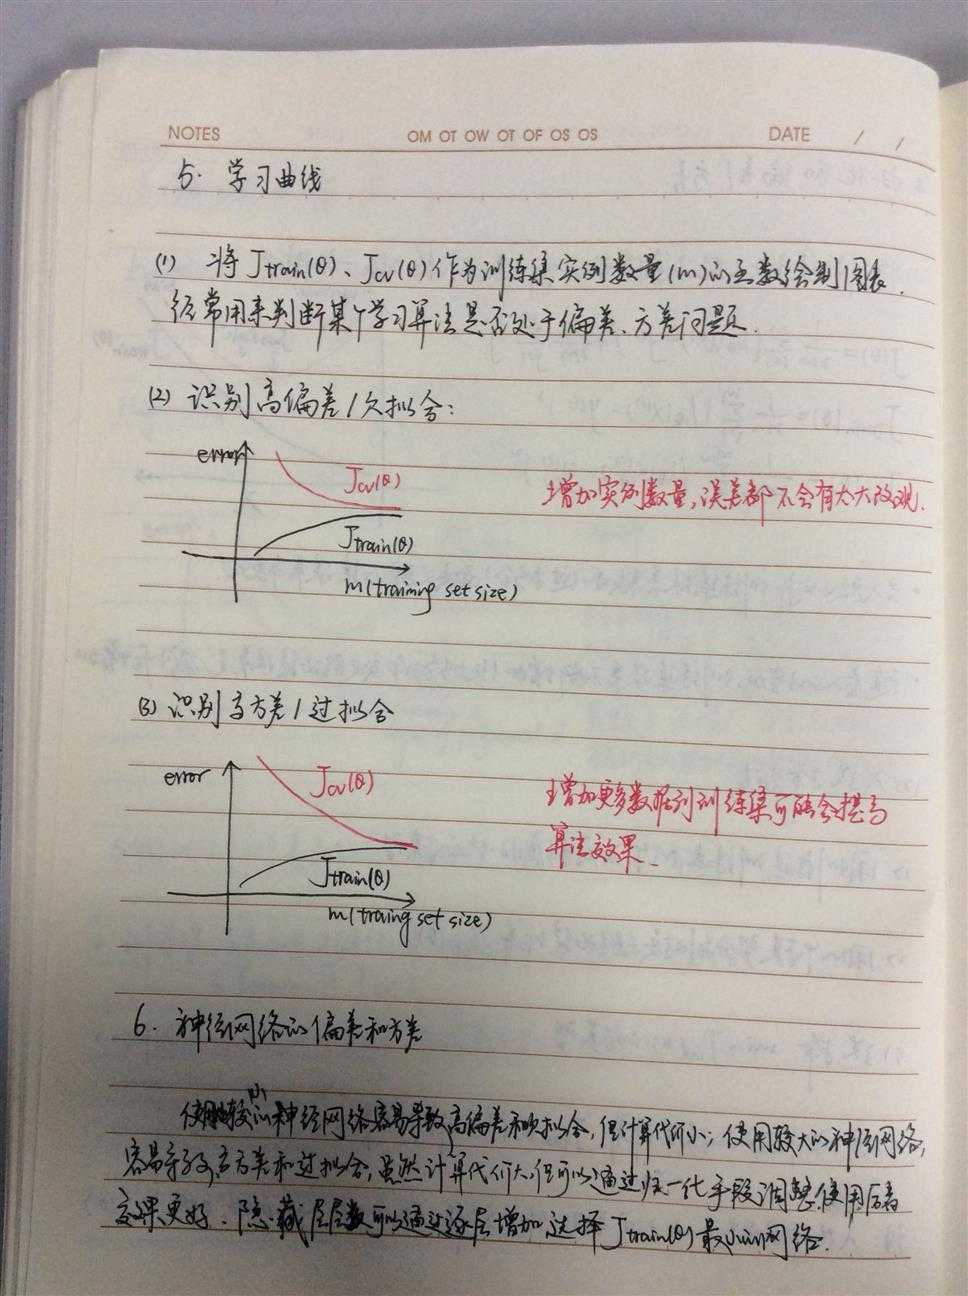 NOTES OM OT OW OT OF OS OS DATE / /
5. 学习曲线
(1) 将 Jtrain(θ)、Jcv(θ) 作为训练集实例数量(m)的函数绘制图表.
经常用来判断某个学习算法是否处于偏差、方差问题.
(2) 识别高偏差/欠拟合:
error
Jcv(θ)
增加实例数量,误差都不会有太大改观.
Jtrain(θ)
m(training set size)
(3) 识别高方差/过拟合
error
Jcv(θ)
增加更多数据到训练集可能会提高
算法效果.
Jtrain(θ)
m(traing set size)
6. 神经网络的偏差和方差
使用较小的神经网络容易导致高偏差和欠拟合,但计算代价小;使用较大的神经网络,
容易导致高方差和过拟合,虽然计算代价大,但可以通过归一化手段调整,使用后者
效果更好. 隐藏层层数可以通过逐层增加,选择Jtrain(θ)最小的网络.